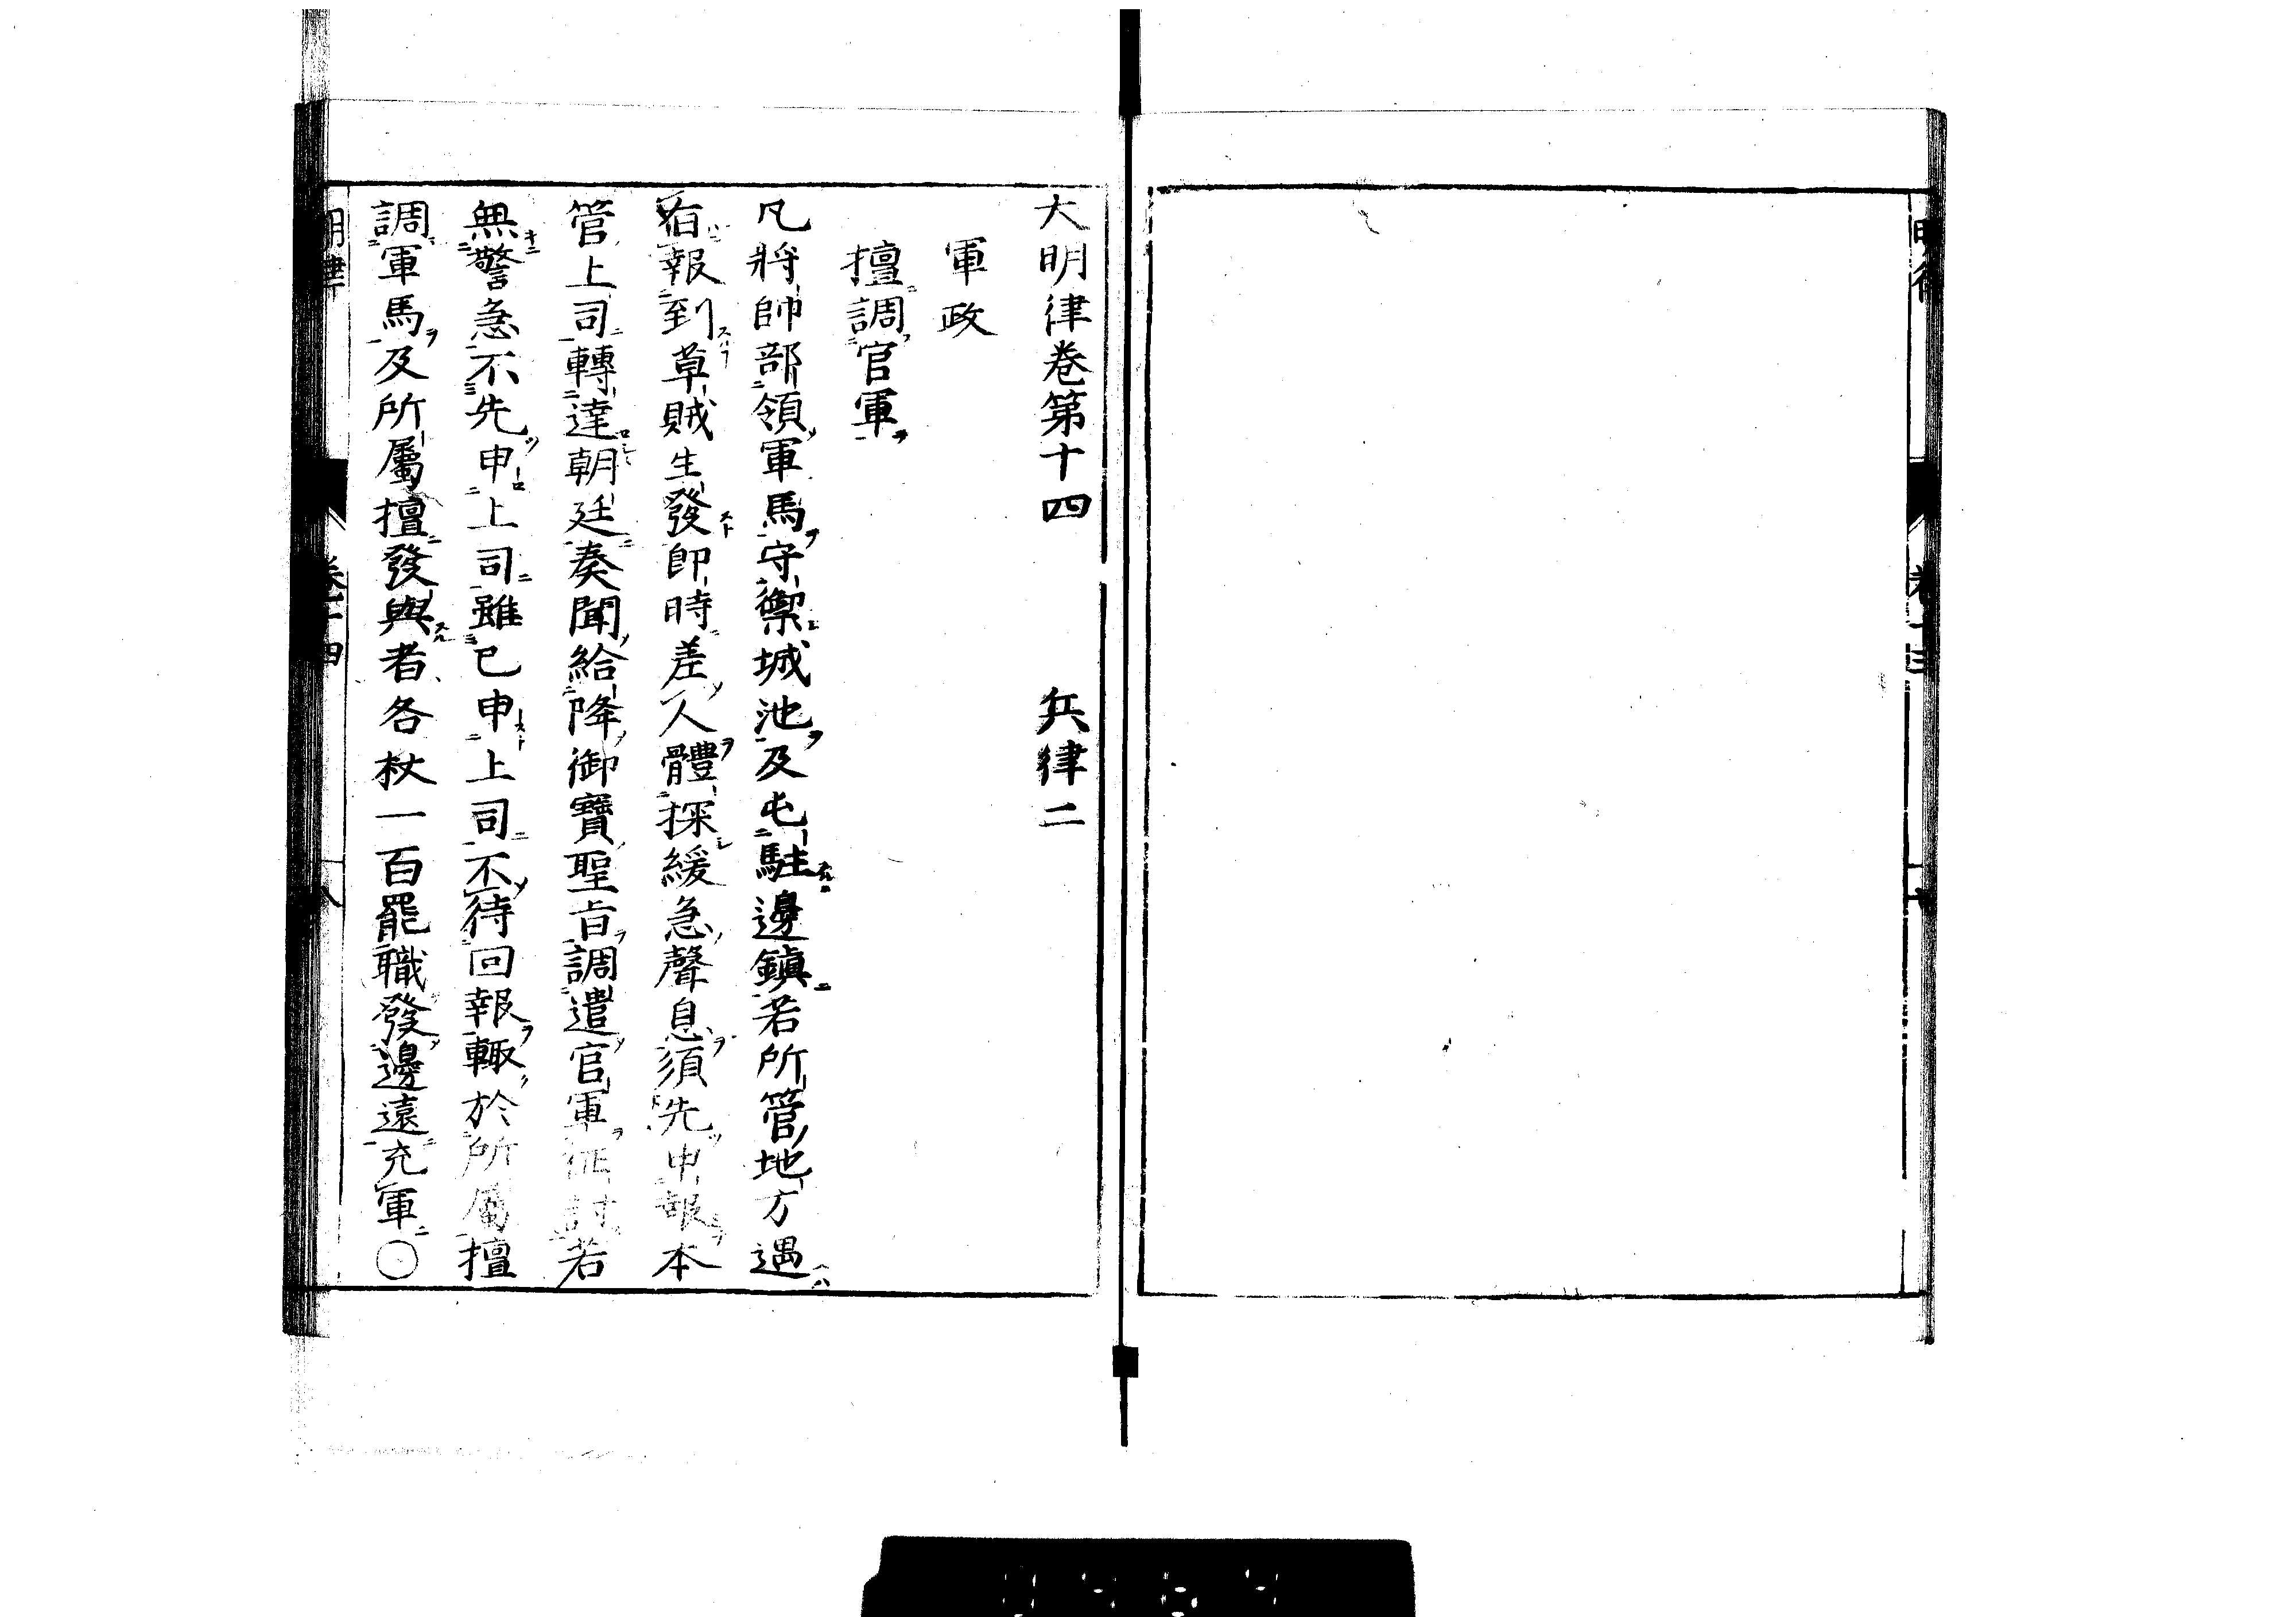 大明律卷第十四　兵律二
軍政
擅調官軍
凡將帥部領軍馬守禦城池及屯駐邊鎮若所管地方遇
有報到草賊生發卽時差人體探緩急聲息須先申報本
管上司轉達朝廷奏聞給降御寶聖旨調遣官軍征討若
無警急不先申上司雖已申上司不待回報輙於所屬擅
調軍馬及所屬擅發與者各杖一百罷職發邊遠充軍〇
明律　卷十四　八